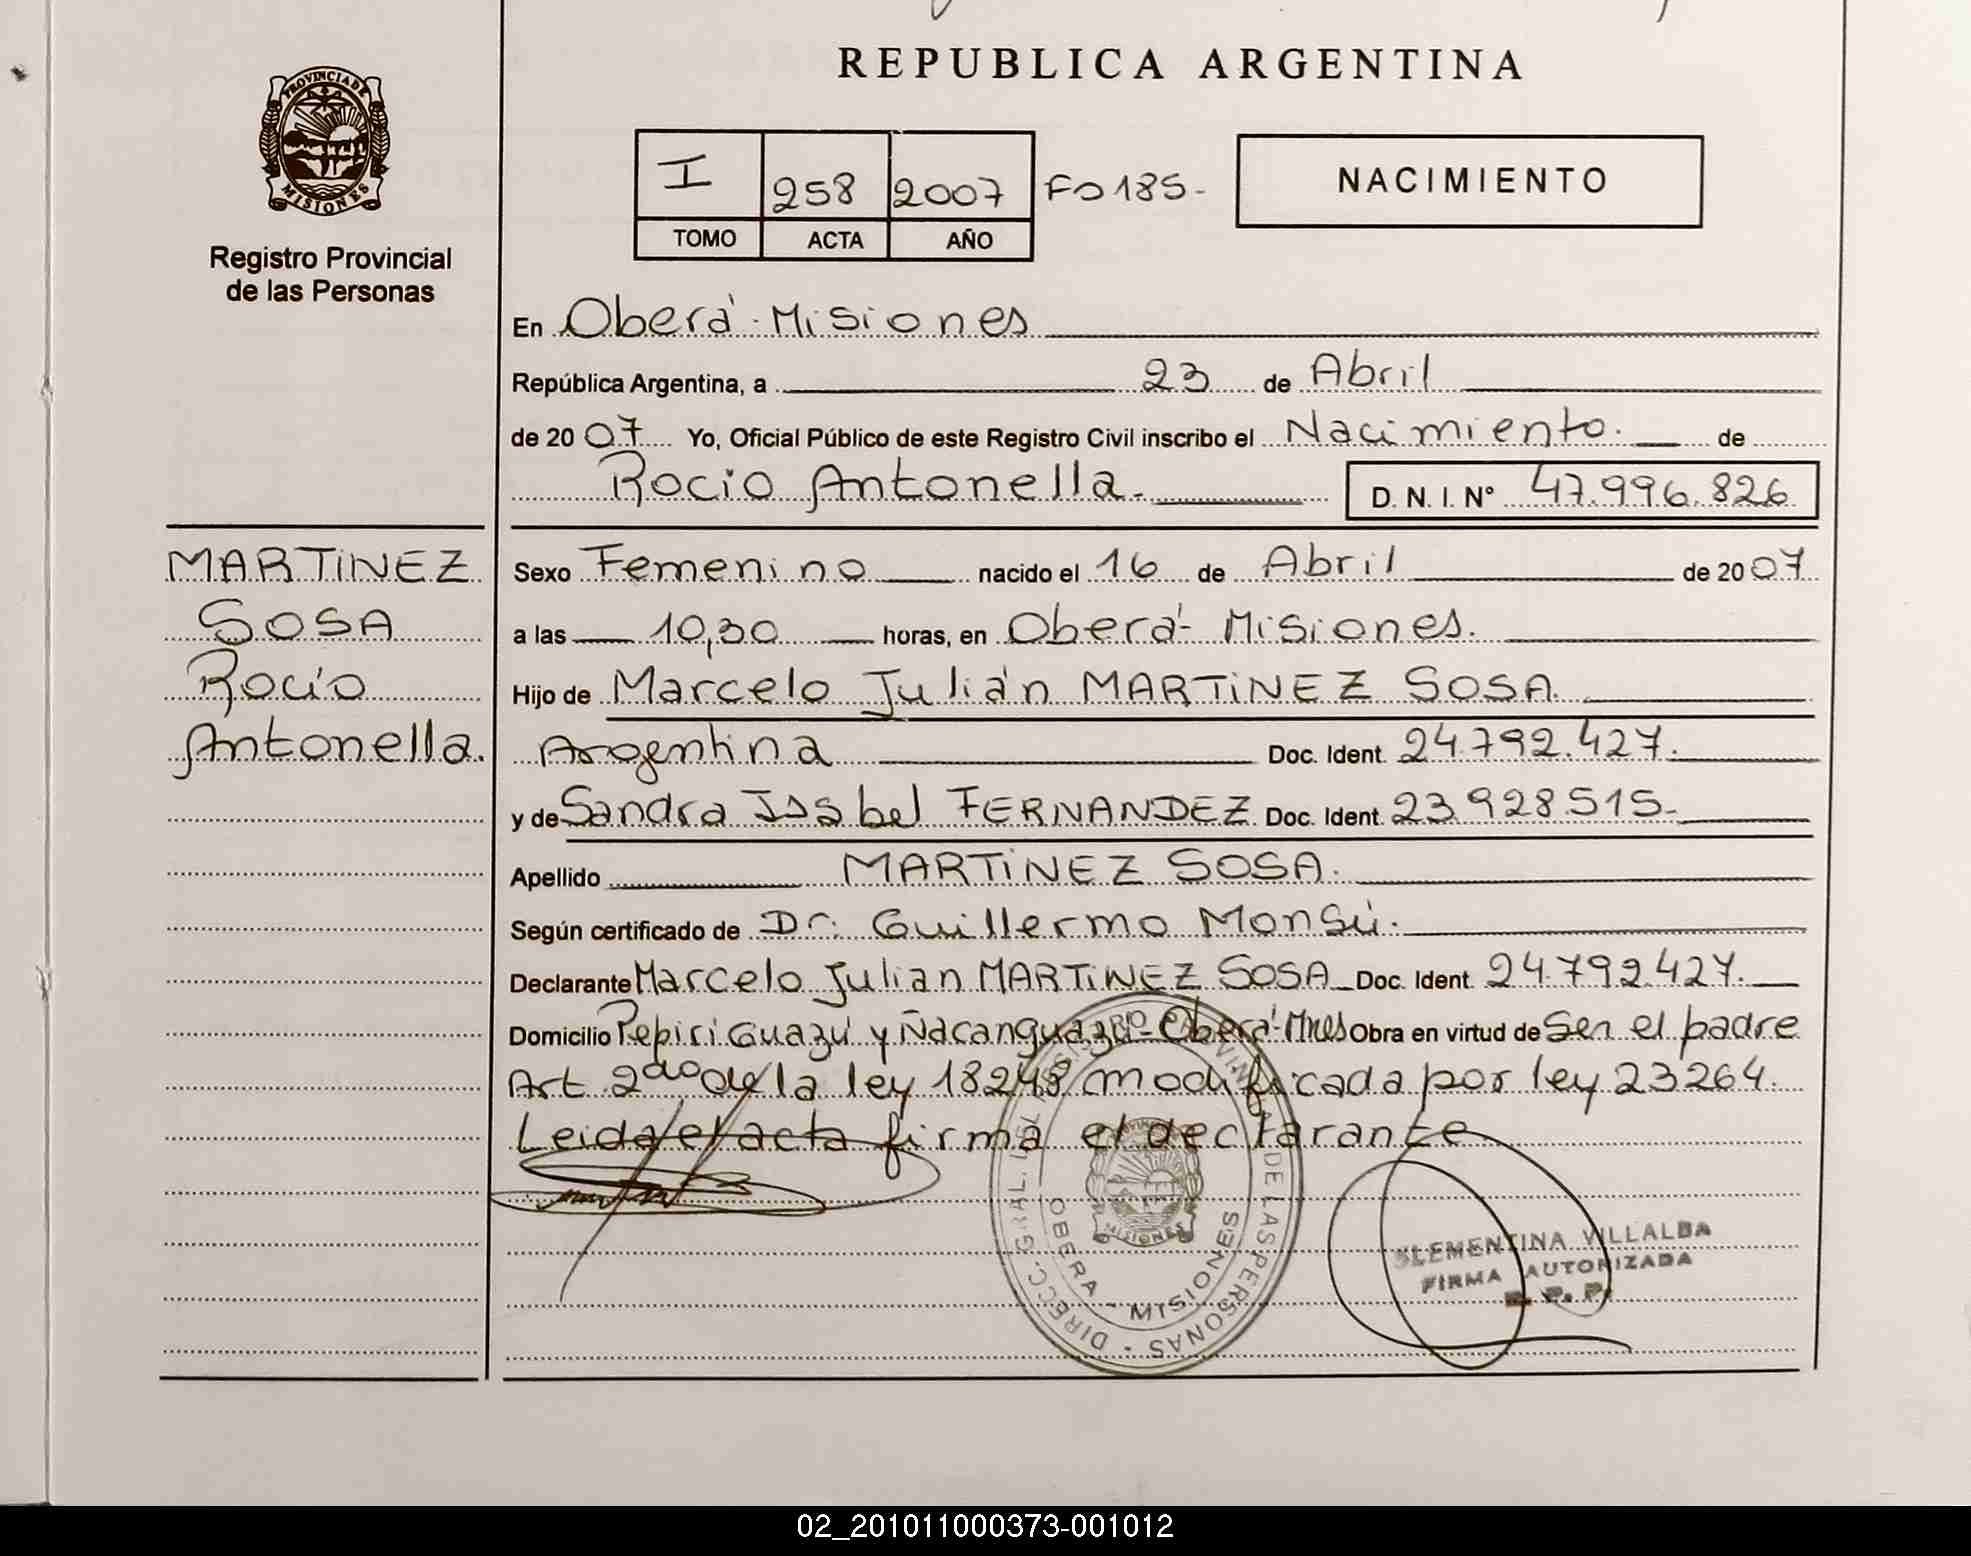 REPUBLICA ARGENTINA
PROVINCIA DE MISIONES
Registro Provincial
de las Personas
I 258 2007 Fo 185-
TOMO ACTA AÑO
NACIMIENTO
En Oberá - Misiones
República Argentina, a 23 de Abril
de 20 07 Yo, Oficial Público de este Registro Civil inscribo el Nacimiento. de
Rocio Antonella. D. N. I. N° 47.996.826
MARTiNEZ
SOSA
Rocío
Antonella.
Sexo Femenino nacido el 16 de Abril de 20 07
a las 10,30 horas, en Oberá - Misiones.
Hijo de Marcelo Julián MARTiNEZ SOSA.
Argentina Doc. Ident. 24.792.427.
y de Sandra Isabel FERNANDEZ Doc. Ident. 23.928.515-
Apellido MARTiNEZ SOSA.
Según certificado de Dr. Guillermo Monsú.
Declarante Marcelo Julian MARTiNEZ SOSA Doc. Ident. 24.792.427.
Domicilio Pepiri Guazú y Ñacanguazú - Oberá - Mnes Obra en virtud de Ser el padre
Art. 2do de la ley 18248 modificada por ley 23264.
Leida el acta firma el declarante
DIREC. GRAL. DEL REGISTRO PROVINCIAL DE LAS PERSONAS
OBERA - MISIONES
CLEMENTINA VILLALBA
FIRMA AUTORIZADA
R. P. P.
02_201011000373-001012